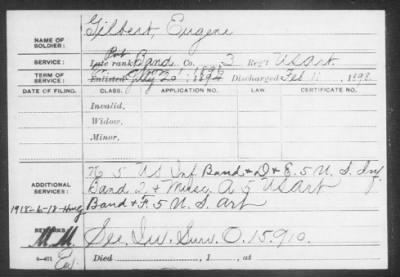 NAME OF SOLDIER: Gilbert, Eugene
SERVICE: Late rank Pvt Band Co. 3 Reg't US Art
TERM OF SERVICE: Enlisted 189 Discharged Feb 11, 1898
DATE OF FILING. CLASS. APPLICATION NO. LAW. CERTIFICATE NO.
Invalid,
Widow,
Minor,
ADDITIONAL SERVICES:
5 US Inf Band & D & E, 5 U. S. Inf
Band 2 & US Art
Band & F. 5 U. S. Art
REMARKS:
See Ind. Surv. O. 15910.
Died , 1 , at